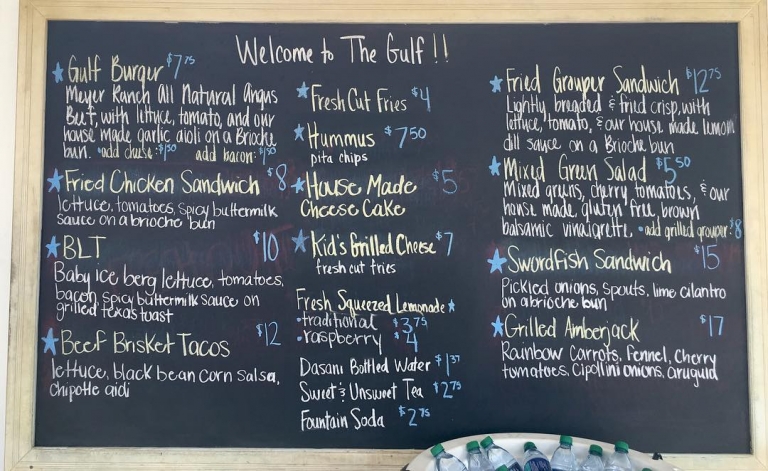 Welcome to The Gulf!!
Gulf Burger $7.75
Meyer Ranch All Natural Angus
Beef, with lettuce, tomato, and our
house made garlic aioli on a Brioche
bun. *add cheese: $1.50 add bacon: $1.50
Fried Chicken Sandwich $8
lettuce, tomatoes, spicy buttermilk
sauce on a brioche bun
BLT $10
Baby ice berg lettuce, tomatoes,
bacon, spicy buttermilk sauce on
grilled texas toast
Beef Brisket Tacos $12
lettuce, black bean corn salsa,
chipotle aioli
Fresh Cut Fries $4
Hummus $7.50
pita chips
House Made $5
Cheese Cake
Kid's Grilled Cheese $7
fresh cut fries
Fresh Squeezed Lemonade
•traditional $3.75
•raspberry $4
Dasani Bottled Water $1.37
Sweet & Unsweet Tea $2.75
Fountain Soda $2.75
Fried Grouper Sandwich $12.75
Lightly breaded & fried crisp, with
lettuce, tomato, & our house made lemon
dill sauce on a Brioche bun
Mixed Green Salad $5.50
Mixed greens, cherry tomatoes, & our
house made, gluten free, brown
balsamic vinaigrette. •add grilled grouper: $8
Swordfish Sandwich $15
Pickled onions, spouts, lime cilantro
on a brioche bun
Grilled Amberjack $17
Rainbow Carrots, Fennel, Cherry
tomatoes, Cipollini onions, arugula